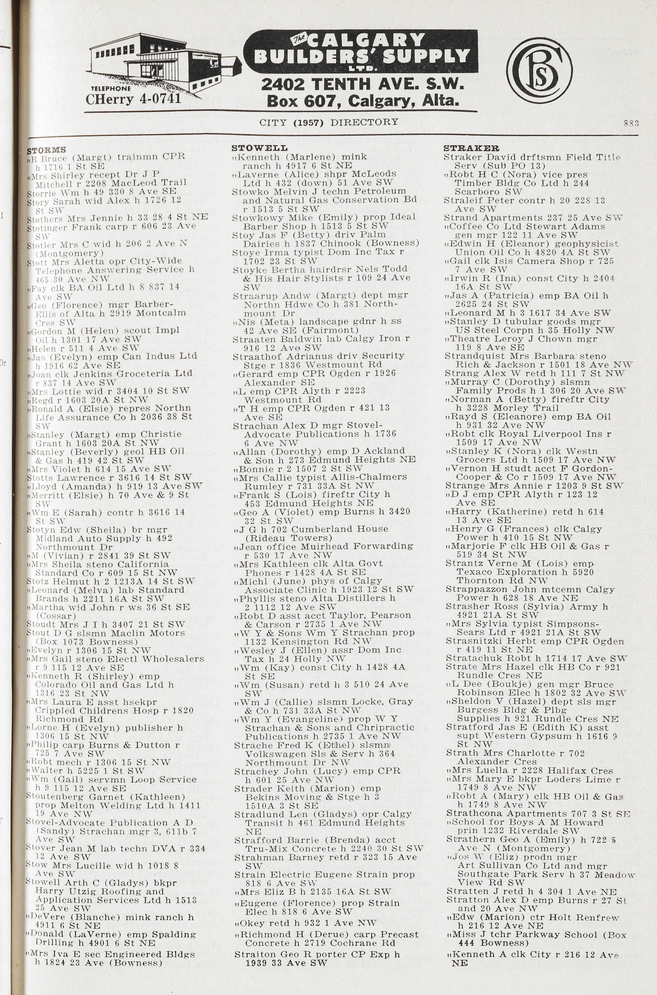 The CALGARY
BUILDERS' SUPPLY
LTD.
TELEPHONE
CHerry 4-0741
2402 TENTH AVE. S.W.
Box 607, Calgary, Alta.
CBS
CITY (1957) DIRECTORY
883
STORMS
"R Bruce (Margt) trainmn CPR
h 1716 1 St SE
"Mrs Shirley recept Dr J P
Mitchell r 2208 MacLeod Trail
Storrie Wm h 49 330 8 Ave SE
Story Sarah wid Alex h 1726 12
St SW
Stothers Mrs Jennie h 33 28 4 St NE
Stotinger Frank carp r 606 23 Ave
SW
Stotler Mrs C wid h 206 2 Ave N
(Montgomery)
Stott Mrs Aletta opr City-Wide
Telephone Answering Service h
465 30 Ave NW
"Fay clk BA Oil Ltd h 8 837 14
Ave SW
"Geo (Florence) mgr Barber-
Ellis of Alta h 2919 Montcalm
Cres SW
"Gordon M (Helen) scout Impl
Oil h 1301 17 Ave SW
"Helen r 511 4 Ave SW
"Jas (Evelyn) emp Can Indus Ltd
h 1916 62 Ave SE
"Joan clk Jenkins Groceteria Ltd
r 837 14 Ave SW
"Mrs Lottie wid r 3404 10 St SW
"Regd r 1603 20A St NW
"Ronald A (Elsie) repres Northn
Life Assurance Co h 2036 38 St
SW
"Stanley (Margt) emp Christie
Grant h 1603 20A St NW
"Stanley (Beverly) geol HB Oil
& Gas h 419 42 St SW
"Mrs Violet h 614 15 Ave SW
Stotts Lawrence r 3616 14 St SW
"Lloyd (Amanda) h 919 13 Ave SW
"Merritt (Elsie) h 70 Ave & 9 St
SW
"Wm E (Sarah) contr h 3616 14
St SW
Stotyn Edw (Sheila) br mgr
Midland Auto Supply h 492
Northmount Dr
"M (Vivian) r 2841 39 St SW
"Mrs Sheila steno California
Standard Co r 609 15 St NW
Stotz Helmut h 2 1213A 14 St SW
"Leonard (Melva) lab Standard
Brands h 2211 16A St SW
"Martha wid John r ws 36 St SE
(Cossar)
Stoudt Mrs J I h 3407 21 St SW
Stout D G slsmn Maclin Motors
(Box 1073 Bowness)
"Evelyn r 1306 15 St NW
"Mrs Gail steno Electl Wholesalers
r 9 115 12 Ave SE
"Kenneth R (Shirley) emp
Colorado Oil and Gas Ltd h
1316 23 St NW
"Mrs Laura E asst hsekpr
Crippled Childrens Hosp r 1820
Richmond Rd
"Lorne H (Evelyn) publisher h
1306 15 St NW
"Philip carp Burns & Dutton r
725 7 Ave SW
"Robt mech r 1306 15 St NW
"Walter h 5225 1 St SW
"Wm (Gail) servmn Loop Service
h 9 115 12 Ave SE
Stoutenberg Garnet (Kathleen)
prop Melton Welding Ltd h 1411
19 Ave NW
Stovel-Advocate Publication A D
(Sandy) Strachan mgr 3, 611b 7
Ave SW
Stover Jean M lab techn DVA r 334
12 Ave SW
Stow Mrs Lucille wid h 1018 8
Ave SW
Stowell Arth C (Gladys) bkpr
Harry Utzig Roofing and
Application Services Ltd h 1513
25 Ave SW
"DeVere (Blanche) mink ranch h
4911 6 St NE
"Donald (LaVerne) emp Spalding
Drilling h 4901 6 St NE
"Mrs Iva E sec Engineered Bldgs
h 1824 23 Ave (Bowness)
STOWELL
"Kenneth (Marlene) mink
ranch h 4917 6 St NE
"Laverne (Alice) shpr McLeods
Ltd h 432 (down) 51 Ave SW
Stowko Melvin J techn Petroleum
and Natural Gas Conservation Bd
r 1513 5 St SW
Stowkowy Mike (Emily) prop Ideal
Barber Shop h 1513 5 St SW
Stoy Jas F (Betty) driv Palm
Dairies h 1837 Chinook (Bowness)
Stoye Irma typist Dom Inc Tax r
1702 23 St SW
Stoyke Bertha hairdrsr Nels Todd
& His Hair Stylists r 109 24 Ave
SW
Straarup Andw (Margt) dept mgr
Northn Hdwe Co h 381 North-
mount Dr
"Nis (Meta) landscape gdnr h ss
42 Ave SE (Fairmont)
Straaten Baldwin lab Calgy Iron r
916 12 Ave SW
Straathof Adrianus driv Security
Stge r 1836 Westmount Rd
"Gerard emp CPR Ogden r 1926
Alexander SE
"L emp CPR Alyth r 2223
Westmount Rd
"T H emp CPR Ogden r 421 13
Ave SE
Strachan Alex D mgr Stovel-
Advocate Publications h 1736
6 Ave NW
"Allan (Dorothy) emp D Ackland
& Son h 273 Edmund Heights NE
"Bonnie r 2 1507 2 St SW
"Mrs Callie typist Allis-Chalmers
Rumley r 731 33A St NW
"Frank S (Lois) fireftr City h
453 Edmund Heights NE
"Geo A (Violet) emp Burns h 3420
32 St SW
"J G h 702 Cumberland House
(Rideau Towers)
"Jean office Muirhead Forwarding
r 530 17 Ave NW
"Mrs Kathleen clk Alta Govt
Phones r 1428 4A St SE
"Michl (June) phys of Calgy
Associate Clinic h 1923 12 St SW
"Phyllis steno Alta Distillers h
2 1112 12 Ave SW
"Robt D asst acct Taylor, Pearson
& Carson r 2735 1 Ave NW
"W Y & Sons Wm Y Strachan prop
1132 Kensington Rd NW
"Wesley J (Ellen) assr Dom Inc
Tax h 24 Holly NW
"Wm (Kay) const City h 1428 4A
St SE
"Wm (Susan) retd h 3 510 24 Ave
SW
"Wm J (Callie) slsmn Locke, Gray
& Co h 731 33A St NW
"Wm Y (Evangeline) prop W Y
Strachan & Sons and Chripractic
Publications h 2735 1 Ave NW
Strache Fred K (Ethel) slsmn
Volkswagen Sls & Serv h 364
Northmount Dr NW
Strachey John (Lucy) emp CPR
h 601 25 Ave NW
Strader Keith (Marion) emp
Bekins Moving & Stge h 3
1510A 3 St SE
Stradlund Len (Gladys) opr Calgy
Transit h 461 Edmund Heights
NE
Strafford Barrie (Brenda) acct
Tru-Mix Concrete h 2240 30 St SW
Strahman Barney retd r 323 15 Ave
SW
Strain Electric Eugene Strain prop
818 6 Ave SW
"Mrs Eliz B h 2135 16A St SW
"Eugene (Florence) prop Strain
Elec h 818 6 Ave SW
"Okey retd h 932 1 Ave NW
"Richmond H (Derue) carp Precast
Concrete h 2719 Cochrane Rd
Straiton Geo R porter CP Exp h
1939 33 Ave SW
STRAKER
Straker David drftsmn Field Title
Serv (Sub PO 13)
"Robt H C (Nora) vice pres
Timber Bldg Co Ltd h 244
Scarboro SW
Straleif Peter contr h 20 228 13
Ave SW
Strand Apartments 237 25 Ave SW
"Coffee Co Ltd Stewart Adams
gen mgr 122 11 Ave SW
"Edwin H (Eleanor) geophysicist
Union Oil Co h 4820 4A St SW
"Gail clk Isis Camera Shop r 725
7 Ave SW
"Irwin R (Ina) const City h 2404
16A St SW
"Jas A (Patricia) emp BA Oil h
2625 24 St SW
"Leonard M h 3 1617 34 Ave SW
"Stanley D tubular goods mgr
US Steel Corpn h 35 Holly NW
"Theatre Leroy J Chown mgr
119 8 Ave SE
Strandquist Mrs Barbara steno
Rich & Jackson r 1501 18 Ave NW
Strang Alex W retd h 111 7 St NW
"Murray C (Dorothy) slsmn
Family Prods h 1 306 20 Ave SW
"Norman A (Betty) fireftr City
h 3228 Morley Trail
"Rayd S (Eleanore) emp BA Oil
h 931 32 Ave NW
"Robt clk Royal Liverpool Ins r
1509 17 Ave NW
"Stanley K (Nora) clk Westn
Grocers Ltd h 1509 17 Ave NW
"Vernon H studt acct F Gordon-
Cooper & Co r 1509 17 Ave NW
Strange Mrs Annie r 1203 9 St SW
"D J emp CPR Alyth r 123 12
Ave SE
"Harry (Katherine) retd h 614
13 Ave SE
"Henry G (Frances) clk Calgy
Power h 410 15 St NW
"Marjorie F clk HB Oil & Gas r
519 34 St NW
Strantz Verne M (Lois) emp
Texaco Exploration h 5920
Thornton Rd NW
Strappazzon John mtcemn Calgy
Power h 628 18 Ave NE
Strasher Ross (Sylvia) Army h
4921 21A St SW
"Mrs Sylvia typist Simpsons-
Sears Ltd r 4921 21A St SW
Strasnitzki Herbt emp CPR Ogden
r 419 11 St NE
Stratachuk Robt h 1714 17 Ave SW
Strate Mrs Hazel clk HB Co r 921
Rundle Cres NE
"L Dee (Boukje) gen mgr Bruce
Robinson Elec h 1802 32 Ave SW
"Sheldon V (Hazel) dept sls mgr
Burgess Bldg & Plbg
Supplies h 921 Rundle Cres NE
Stratford Jas E (Edith K) asst
supt Western Gypsum h 1616 9
St NW
Strath Mrs Charlotte r 702
Alexander Cres
"Mrs Luella r 2228 Halifax Cres
"Mrs Mary E bkpr Loders Lime r
1749 8 Ave NW
"Robt A (Mary) clk HB Oil & Gas
h 1749 8 Ave NW
Strathcona Apartments 707 3 St SE
"School for Boys A M Howard
prin 1232 Riverdale SW
Strathern Geo A (Emily) h 722 8
Ave N (Montgomery)
"Jos W (Eliz) prodn mgr
Art Sullivan Co Ltd and mgr
Southgate Park Serv h 37 Meadow
View Rd SW
Stratten J retd h 4 304 1 Ave NE
Stratton Alex D emp Burns r 27 St
and 20 Ave NW
"Edw (Marion) ctr Holt Renfrew
h 216 12 Ave NE
"Miss J tchr Parkway School (Box
444 Bowness)
"Kenneth A clk City r 216 12 Ave
NE